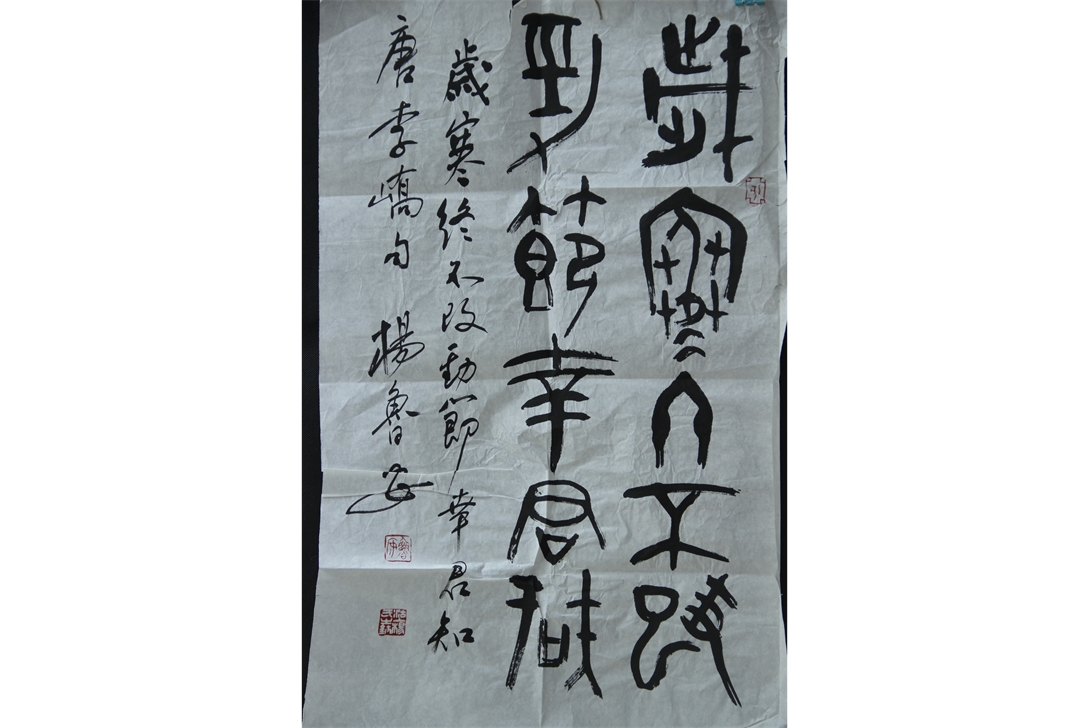 歲寒終不改
勁節幸君知
歲寒終不改勁節幸君知
唐李嶠句楊魯安